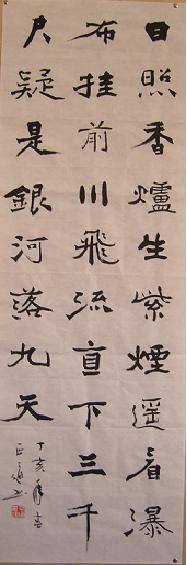 日照香爐生紫煙遥看瀑
布挂前川飛流直下三千
尺疑是銀河落九天
丁亥年春